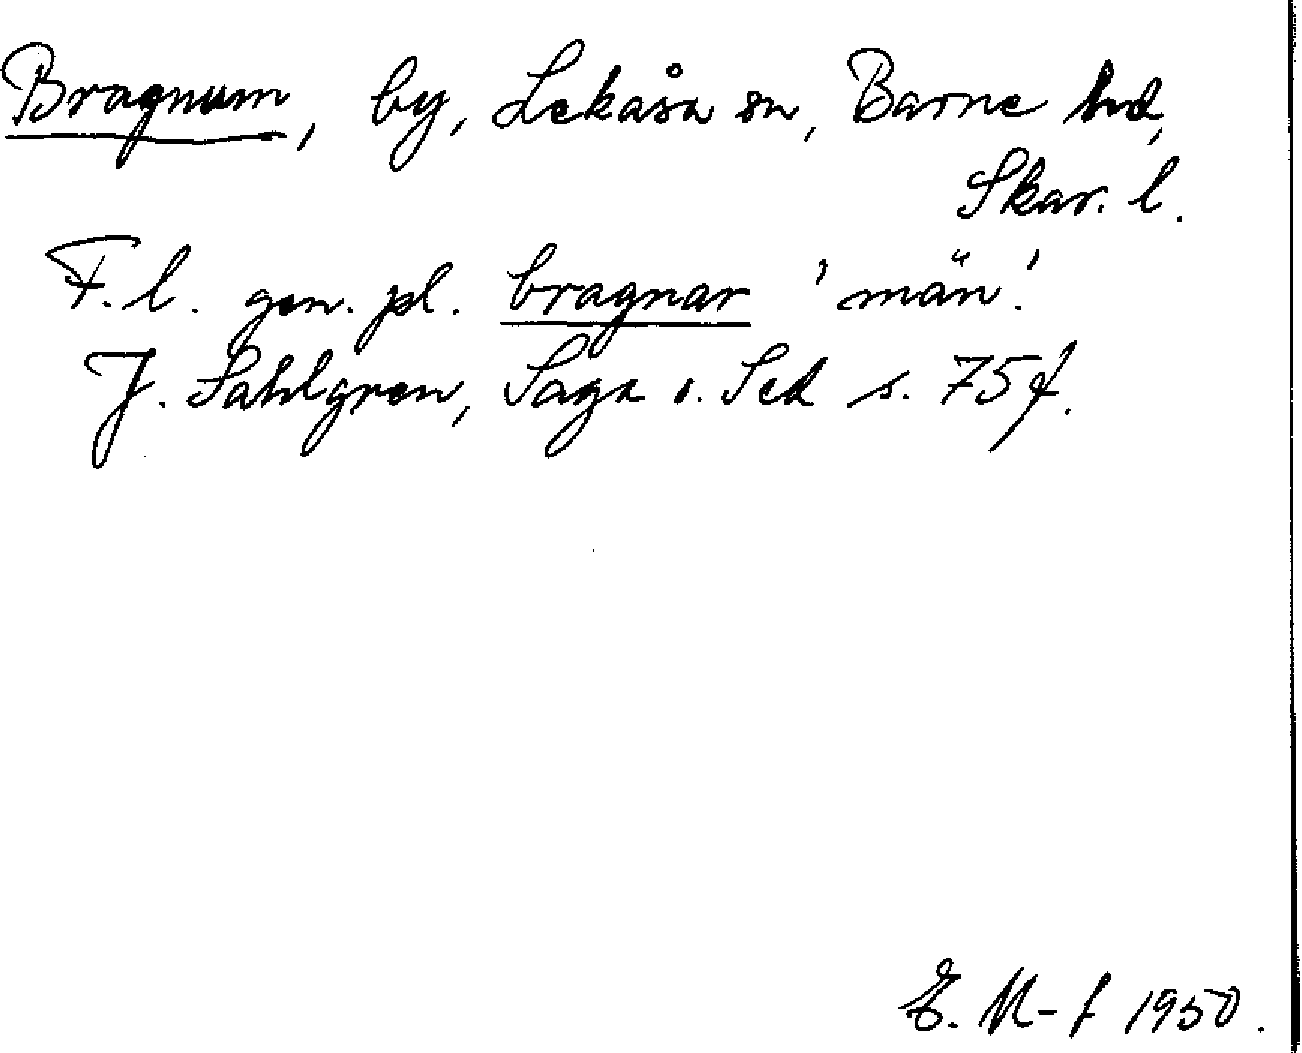 Bragnum, by, Lekåsa sn, Barne hd,
Skar. l.
F. l. gen. pl. bragnar 'män'.
J. Sahlgren, Saga o. Sed s. 75 f.
E. M-f 1950.